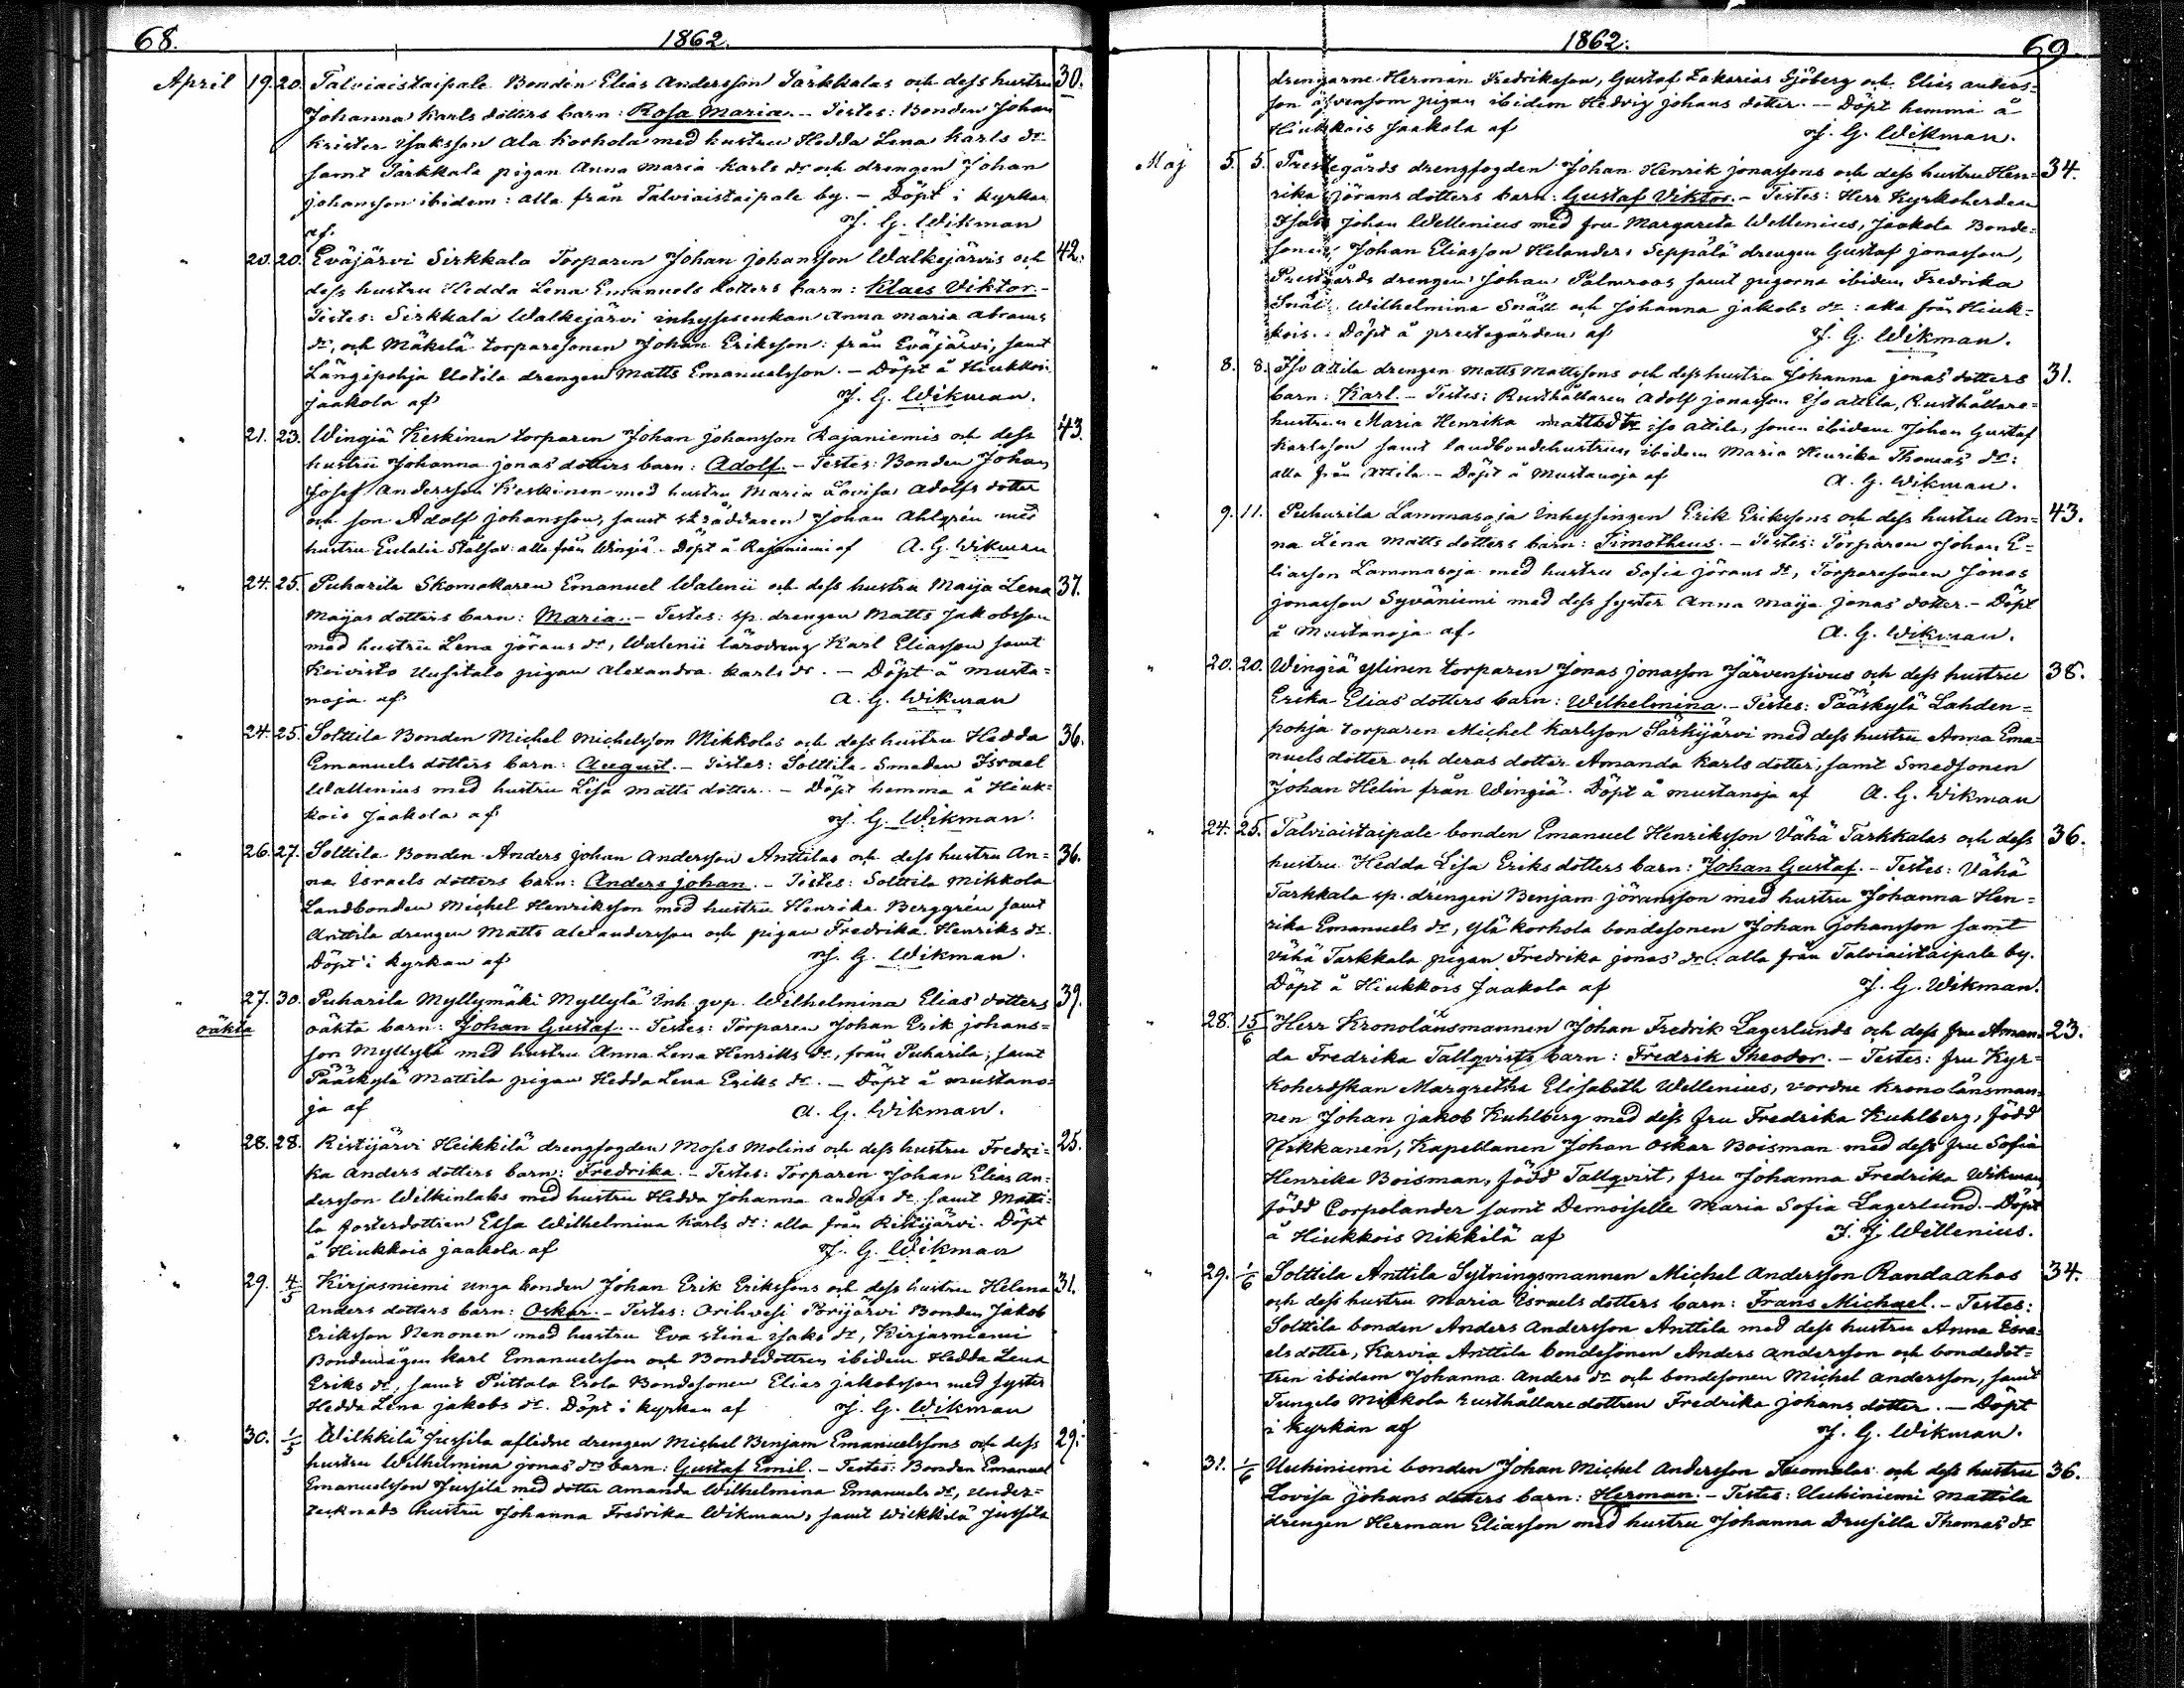 68. 1862.
April 19. 20. Talviaistaipale Bonden Elias Andersson Tarkkalas och dess hustru 30.
Johanna Karls dotters barn: Rosa Maria. – Testes: Bonden Johan
Krister Isaksson Ala Korhola med hustru Hedda Lena Karls dr
samt Tarkkala pigan Anna Maria Karls dr och drengen Johan
Johansson ibidem: alla från Talviaistaipale by. – Döpt i kyrkan
af. J. G. Wikman
" 20. 20. Eväjärvi Sirkkala Torparen Johan Johansson Walkejärvis och 42.
dess hustru Hedda Lena Emanuels dotters barn: Klaes Viktor. –
Testes: Sirkkala Walkejärvi inhysesenkan Anna Maria Abrams
dr, och Mäkelä torparesonen Johan Eriksson: från Eväjärvi, samt
Längipohja Uotila drengen Matts Emanuelsson. – Döpt å Hiukkois
Jaakola af J. G. Wikman.
" 21. 23. Wingiä Keskinen torparen Johan Johansson Rajaniemis och dess 43.
hustru Johanna Jonas dotters barn: Adolf. – Testes: Bonden Johan
Josef Andersson Keskinen med hustru Maria Lovisa Adolfs dotter
och son Adolf Johansson, samt skräddaren Johan Ahlgrén med
hustru Eulalia Stålfors: alla från Wingiä. Döpt å Rajaniemi af A. G. Wikman
" 24. 25. Puharila Skomakaren Emanuel Walenii och dess hustru Maija Lena 37.
Maijas dotters barn: Maria. – Testes: sp. drengen Matts Jakobsson
med hustru Lena Jörans dr, Walenii lärodreng Karl Eliasson samt
Koivisto Uusitalo pigan Alexandra Karls dr. – Döpt å Musta=
noja af A. G. Wikman
" 24. 25. Solttila Bonden Michel Michelsson Mikkolas och dess hustru Hedda 36.
Emanuels dotters barn: August. – Testes: Solttila Smeden Israel
Wallenius med hustru Lisa Matts dotter. – Döpt hemma å Hiuk=
kois Jaakola af J. G. Wikman.
" 26. 27. Solttila Bonden Anders Johan Andersson Anttilas och dess hustru An= 36.
na Israels dotters barn: Anders Johan. – Testes: Solttila Mikkola
Landbonden Michel Henriksson med hustru Henrika Berggrén samt
Anttila drengen Matts Alexandersson och pigan Fredrika Henriks dr.
Döpt i kyrkan af J. G. Wikman.
" 27. 30. Puharila Myllymäki Myllylä Inh. qvp. Wilhelmina Elias dotters 39.
oäkta oäkta barn: Johan Gustaf. – Testes: Torparen Johan Erik Johans=
son Myllylä med hustru Anna Lena Henriks dr, från Puharila, samt
Pääskylä Mattila pigan Hedda Lena Eriks dr. – Döpt å Mustano=
ja af A. G. Wikman.
" 28. 28. Ristijärvi Heikkilä drengfogden Moses Molins och dess hustru Fredri= 25.
ka Anders dotters barn: Fredrika. – Testes: Torparen Johan Elias An=
dersson Wilkinlaks med hustru Hedda Johanna Anders dr. samt Matti=
la fosterdottren Elsa Wilhelmina Karls dr: alla från Ristijärvi. Döpt
å Hiukkois Jaakola af J. G. Wikman
" 29. 4/5 Kirjasniemi unga bonden Johan Erik Erikssons och dess hustru Helena 31.
Anders dotters barn: Oskar. – Testes: Orihvesi Porijärvi Bonden Jakob
Eriksson Nenonen med hustru Eva Stina Isaks dr, Kirjasniemi
Bondemågen Karl Emanuelsson och Bondedottren ibidem Hedda Lena
Eriks dr, samt Puttola Erola Bondesonen Elias Jakobsson med syster
Hedda Lena Jakobs dr. Döpt i kyrkan af J. G. Wikman
" 30. 1/5 Wilkkilä Jussila aflidne drengen Michel Benjam Emanuelssons och dess 29.
hustru Wilhelmina Jonas drs barn: Gustaf Emil. – Testes: Bonden Emanuel
Emanuelsson Jussila med dotter Amanda Wilhelmina Emanuels dr, under=
tecknads hustru Johanna Fredrika Wikman, samt Wilkkilä Jussila
1862. 69.
drengarne Herman Fredriksson, Gustaf Zakarias Sjöberg och Elias anders=
son äfvensom pigan ibidem Hedvig Johans dotter. – Döpt hemma å
Hiukkois Jaakola af J. G. Wikman.
Maj 5. 5. Prestegårds drengfogden Johan Henrik Jonassons och dess hustru Hen= 34.
rika Jörans dotters barn: Gustaf Viktor. – Testes: Herr Kyrkoherden
Isak Johan Wellenius med fru Margareta Wellenius, Jaakola Bonde=
sonen Johan Eliasson Helander, Seppälä drengen Gustaf Jonasson,
Prestgårds drengen Johan Palmroos samt pigorna ibidem Fredrika
Snäll, Wilhelmina Snäll och Johanna Jakobs dr: alla från Hiuk=
kois. Döpt å prestegården af J. G. Wikman.
" 8. 8. Iso Attila drengen Matts Mattssons och dess hustru Johanna Jonas dotters 31.
barn: Karl. – Testes: Rusthållaren Adolf Jonasson Iso Attila, Rusthållare=
hustrun Maria Henrika Matts dr Iso Attila, sonen ibidem Johan Gustaf
Karlsson samt landbondehustrun ibidem Maria Henrika Thomas dr:
alla från Attila. – Döpt å Mustanoja af A. G. Wikman.
" 9. 11. Puharila Lammasoja Inhysingen Erik Erikssons och dess hustru An= 43.
na Lena Matts dotters barn: Timotheus. – Testes: Torparen Johan E=
liasson Lammasoja med hustru Sofia Jörans dr, Torparesonen Jonas
Jonasson Syväniemi med dess syster Anna Maija Jonas dotter. – Döpt
å Mustanoja af. A. G. Wikman.
" 20. 20. Wingiä Ylinen torparen Jonas Jonasson Järvensivus och dess hustru 38.
Erika Elias dotters barn: Wilhelmina. – Testes: Pääskylä Lahden=
pohja torparen Michel Karlsson Särkijärvi med dess hustru Anna Ema=
nuels dotter och deras dotter Amanda Karls dotter, samt Smedsonen
Johan Helin från Wingiä. Döpt å Mustanoja af A. G. Wikman
" 24. 25. Talviaistaipale bonden Emanuel Henriksson Vähä Tarkkalas och dess 36.
hustru Hedda Lisa Eriks dotters barn: Johan Gustaf. – Testes: Vähä
Tarkkala sp. drengen Benjam Jöransson med hustru Johanna Hen=
rika Emanuels dr, Ylä Korhola bondesonen Johan Johansson samt
Vähä Tarkkala pigan Fredrika Jonas dr: alla från Talviaistaipale by.
Döpt å Hiukkois Jaakola af J. G. Wikman.
" 28. 15/6 Herr Kronolänsmannen Johan Fredrik Lagerlunds och dess fru Aman= 23.
da Fredrika Tallqvists barn: Fredrik Theodor. – Testes: Fru Kyr=
koherdskan Margretha Elisabeth Wellenius, vordne Kronolänsman=
nen Johan Jakob Kuhlberg med dess fru Fredrika Kuhlberg, född
Nikkanen, Kapellanen Johan Oskar Boisman med dess fru Sofia
Henrika Boisman, född Tallqvist, fru Johanna Fredrika Wikman,
född Corpolander samt Demoiselle Maria Sofia Lagerlund. – Döpt
å Hiukkois Nikkilä af I. J. Wellenius.
" 29. 1/6 Solttila Anttila Sytningsmannen Michel Andersson Randaahos 34.
och dess hustru Maria Israels dotters barn: Frans Michael. – Testes:
Solttila bonden Anders Andersson Anttila med dess hustru Anna Isra=
els dotter, Karvia Anttila bondesonen Anders Andersson och bondedot=
tren ibidem Johanna Anders dr och bondesonen Michel Andersson, samt
Tungelo Mikkola rusthållaredottren Fredrika Johans dotter. – Döpt
i kyrkan af J. G. Wikman.
" 31. 1/6 Uuhiniemi bonden Johan Michel Andersson Tuomolas och dess hustru 36.
Lovisa Johans dotters barn: Herman. – Testes: Uuhiniemi Mattila
drengen Herman Eliasson med hustru Johanna Drusilla Thomas dr